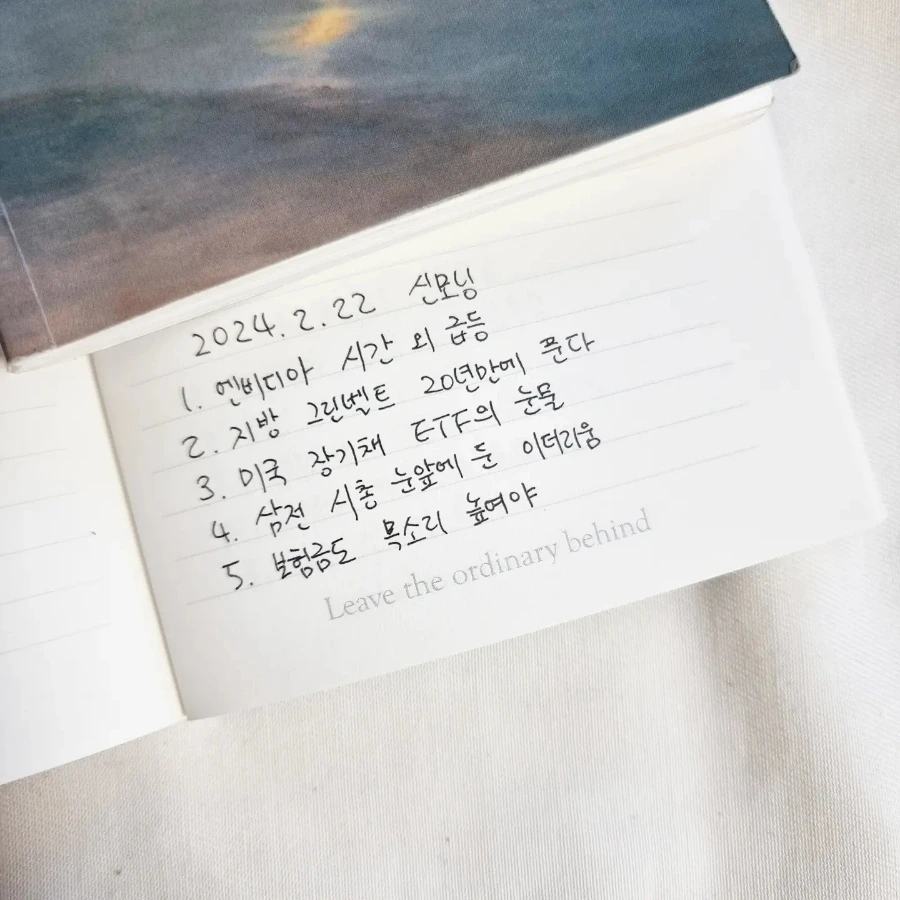 2024.2.22 신모닝
1. 엔비디아 시간 외 급등
2. 지방 그린벨트 20년만에 푼다
3. 미국 장기채 ETF의 눈물
4. 삼전 시총 눈앞에 둔 이더리움
5. 보험금도 목소리 높여야
Leave the ordinary behind